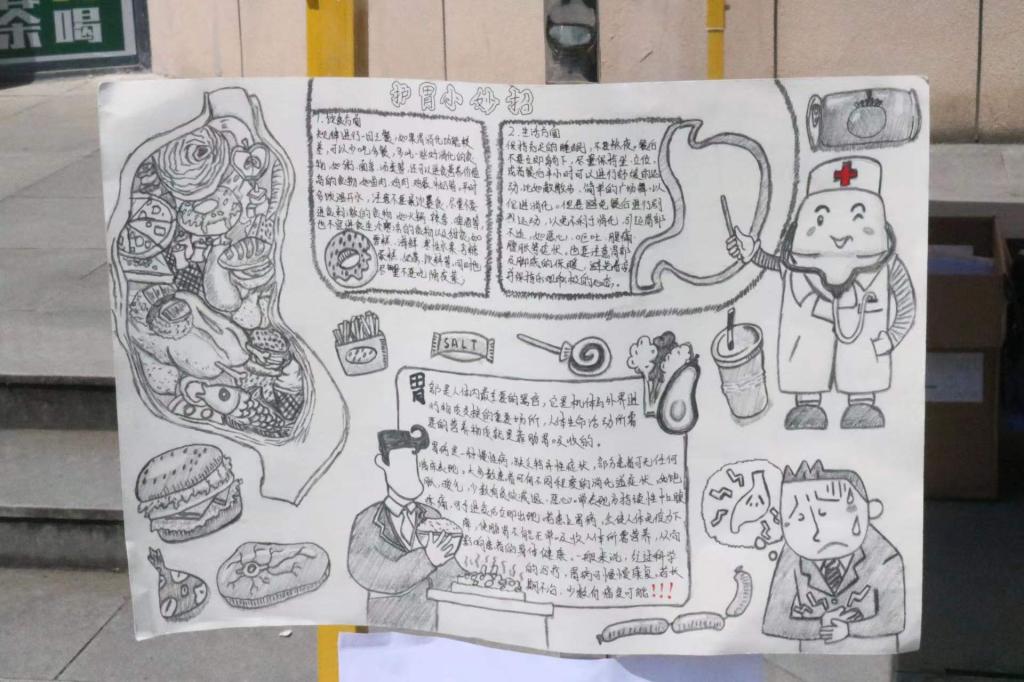 喝
茶
护胃小妙招
1.饮食方面
规律进行一日三餐,如果胃消化功能较
差,可以少吃多餐,多吃一些好消化的食
物,如粥、面条、汤
高的食物,如鱼肉、鸡肉、鸡蛋、牛奶等,平时
多饮温开水,注意不要暴饮暴食,尽量避
免
也不宜进食生冷寒凉的食物以及甜食,如
雪糕、海鲜
蛋糕
2.生活方面
保持充足的睡眠,不要熬夜,餐后
不要立即躺下,尽量保持坐、立位,
或者餐后半小时可以进行舒缓的运
动,比如散散步、简单的广场舞,以
促进消化。但要避免餐后进行剧
烈运动,以免不利于消化,引起胃部
不适,如恶心、呕吐、腹痛、
腹胀等症状,也要注意胃部
及脚底的保暖,避免着凉
并保持乐观积极的心态。
SALT
胃部是人体内最主要的器官,它是机体与外界进
行物质交换的重要场所,人体生命活动所需
要的营养物质就是靠肠胃吸收的。
胃病是一种慢性病,缺乏特异性症状,部分患者可无任何
临床表现,大多数患者可有不同程度的消化道症状,如饱
胀、嗳气,少数有食欲减退、恶心。常表现为持续性中上腹
疼痛,可于进食后立即出现。若患上胃病,会使人体免疫力下
降,使肠胃不能正常吸收人体所需营养,从而
影响患者的身体健康。一般来说,经过科学
的治疗,胃病可慢慢康复,若长
期不治,少数有癌变可能!!!